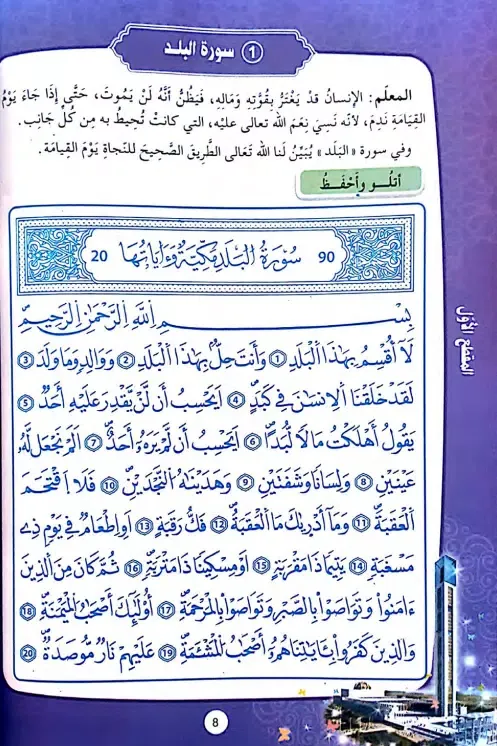 ① سورة البلد
المعلم: الإنسانُ قدْ يَغْتَرُّ بِقُوَّتِهِ وَمَالِهِ، فَيَظُنُّ أنَّهُ لَنْ يَمُوتَ، حَتَّى إذَا جَاءَ يَوْمُ
القِيَامَة نَدِمَ، لأنّه نَسِيَ نِعَمَ الله تعالى عليْه، التي كانتْ تُحِيطُ به مِن كُلّ جَانِب.
وفي سورة «البَلَد» يُبَيِّنُ لنا الله تَعَالى الطَّرِيقَ الصَّحِيحَ للنَّجاةِ يَوْمَ القِيَامَة.
أتلُـو وأحْفَـظُ
90 سُورَةُ الْبَلَدِ مَكِيَّةٌ وَءَايَاتُهَا 20
بِسْمِ اللَّهِ الرَّحْمَٰنِ الرَّحِيمِ
لَآ أُقْسِمُ بِهَٰذَا الْبَلَدِ ① وَأَنتَ حِلٌّ بِهَٰذَا الْبَلَدِ ② وَوَالِدٍ وَمَا وَلَدَ ③
لَقَدْ خَلَقْنَا الْإِنسَٰنَ فِي كَبَدٍ ④ أَيَحْسِبُ أَن لَّنْ يَّقْدِرَ عَلَيْهِ أَحَدٌ ⑤
يَقُولُ أَهْلَكْتُ مَالًا لُّبَدًا ⑥ أَيَحْسِبُ أَن لَّمْ يَرَهُۥ أَحَدٌ ⑦ أَلَمْ نَجْعَل لَّهُۥ
عَيْنَيْنِ ⑧ وَلِسَانًا وَشَفَتَيْنِ ⑨ وَهَدَيْنَٰهُ النَّجْدَيْنِ ⑩ فَلَا اَقْتَحَمَ
الْعَقَبَةَ ⑪ وَمَآ أَدْرَىٰكَ مَا الْعَقَبَةُ ⑫ فَكُّ رَقَبَةٍ ⑬ أَوِ اطْعَٰمٌ فِي يَوْمٍ ذِي
مَسْغَبَةٍ ⑭ يَتِيمًا ذَا مَقْرَبَةٍ ⑮ أَوْ مِسْكِينًا ذَا مَتْرَبَةٍ ⑯ ثُمَّ كَانَ مِنَ الَّذِينَ
ءَامَنُوا وَتَوَاصَوْا بِالصَّبْرِ وَتَوَاصَوْا بِالْمَرْحَمَةِ ⑰ أُوْلَٰٓئِكَ أَصْحَٰبُ الْمَيْمَنَةِ ⑱
وَالَّذِينَ كَفَرُوا بِـَٔايَٰتِنَا هُمُۥٓ أَصْحَٰبُ الْمَشْـَٔمَةِ ⑲ عَلَيْهِمْ نَارٌ مُّوصَدَةٌ ⑳
المقطع الأوّل
8